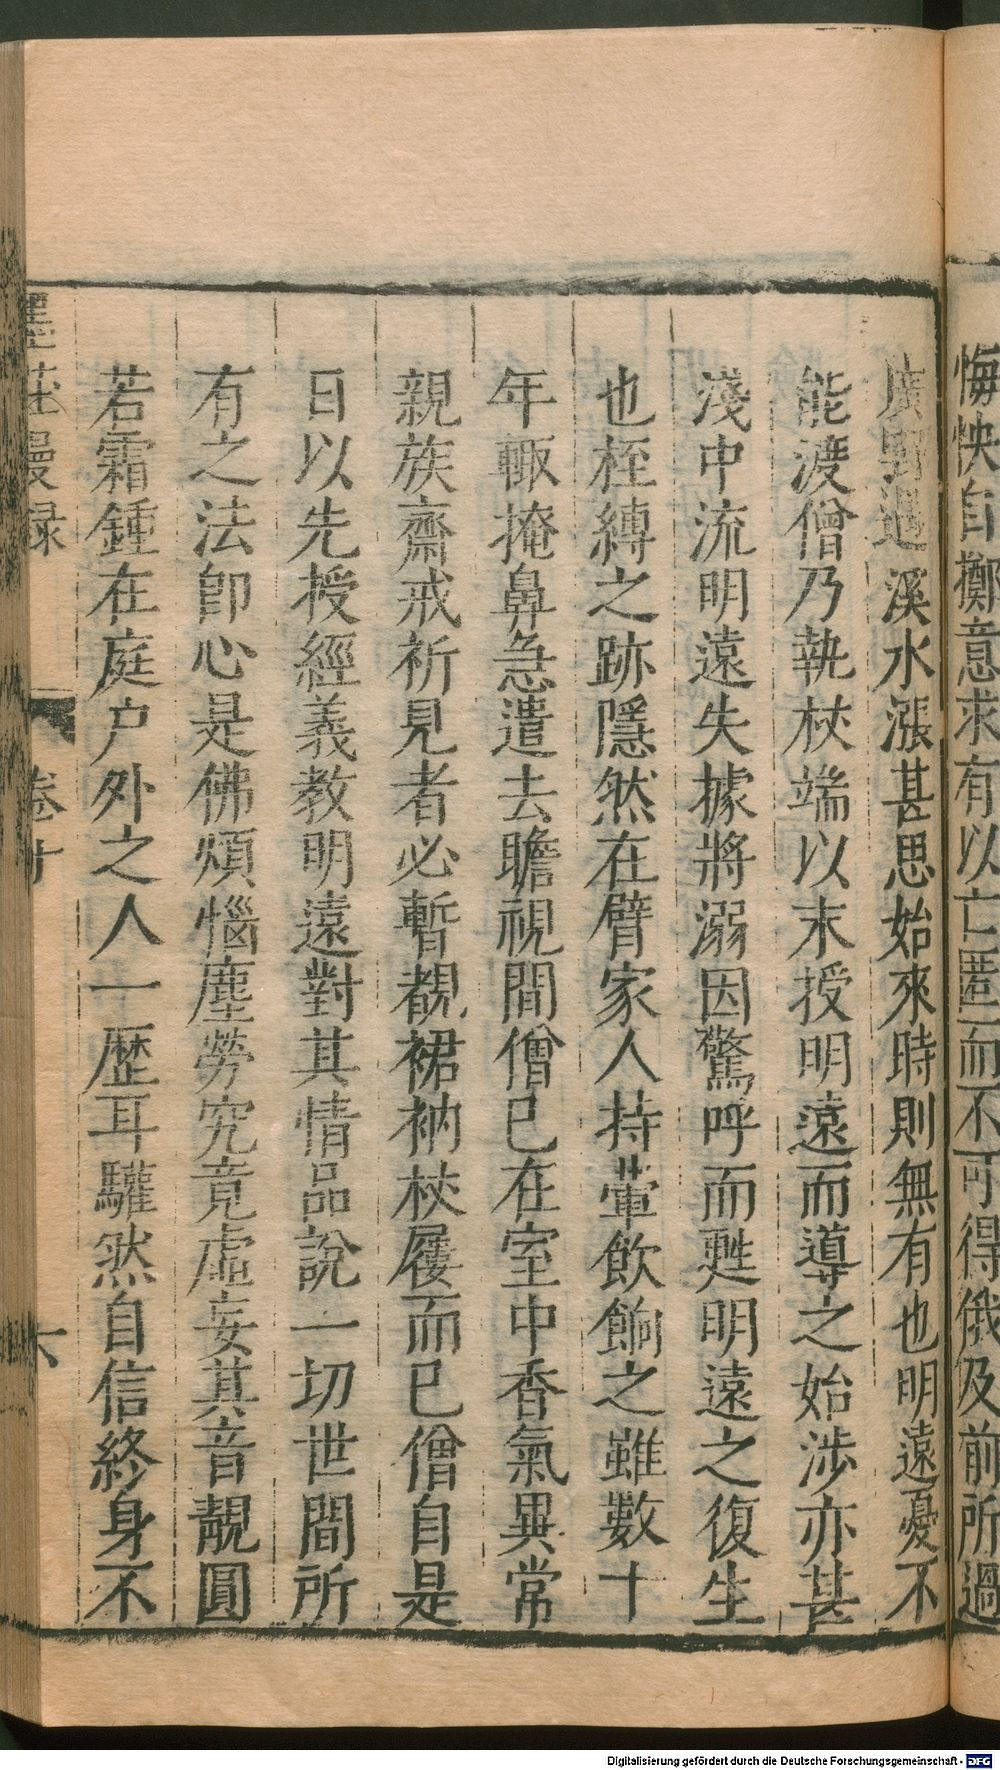 悔怏自擲意求有以亡匿而不可得俄及前所過
廣野遇溪水漲甚思始來時則無有也明遠憂不
能渡僧乃執杖端以末授明遠而導之始涉亦甚
淺中流明遠失據將溺因驚呼而甦明遠之復生
也桎縛之跡隱然在臂家人持葷飲餉之雖數十
年輙掩鼻急遣去瞻視間僧已在室中香氣異常
親族齋戒祈見者必暫覩裙衲杖屨而已僧自是
日以先授經義教明遠對其情品說一切世間所
有之法卽心是佛煩惱塵勞究竟虛妄其音靚圓
若霜鍾在庭户外之人一歷耳驩然自信終身不
墨莊漫录 卷十 六
Digitalisierung gefördert durch die Deutsche Forschungsgemeinschaft - DFG